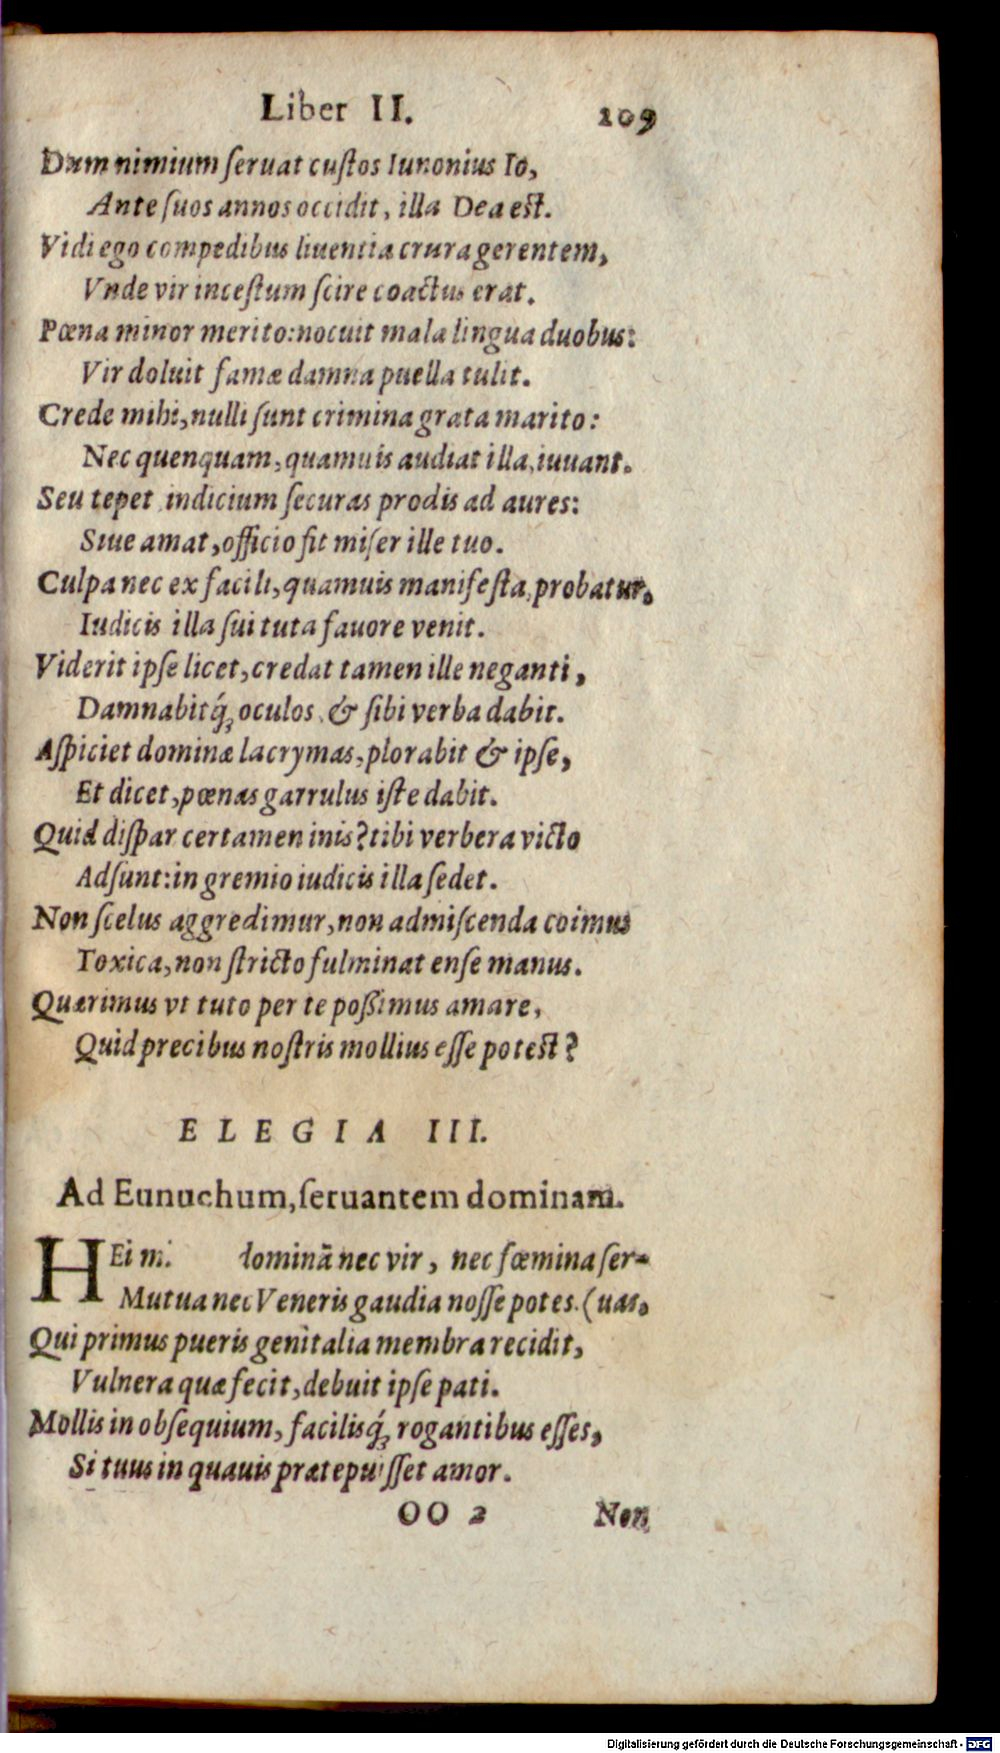 Liber II. 209
Dum nimium ſeruat cuſtos Iunonius Io,
Ante ſuos annos occidit, illa Dea est.
Vidi ego compedibus liuentia crura gerentem,
Vnde vir inceſtum ſcire coactus erat.
Pœna minor merito: nocuit mala lingua duobus:
Vir doluit famæ damna puella tulit.
Crede mihi, nulli ſunt crimina grata marito:
Nec quenquam, quamuis audiat illa, iuuant.
Seu tepet indicium ſecuras prodis ad aures:
Siue amat, officio fit miſer ille tuo.
Culpa nec ex facili, quamuis manifeſta, probatur,
Iudicis illa ſui tuta fauore venit.
Viderit ipſe licet, credat tamen ille neganti,
Damnabitq́; oculos, & ſibi verba dabit.
Aſpiciet dominæ lacrymas, plorabit & ipſe,
Et dicet, pœnas garrulus iſte dabit.
Quid diſpar certamen inis? tibi verbera victo
Adſunt: in gremio iudicis illa ſedet.
Non ſcelus aggredimur, non admiſcenda coimus
Toxica, non ſtricto fulminat enſe manus.
Quærimus vt tuto per te poßimus amare,
Quid precibus noſtris mollius eſſe potest?
ELEGIA III.
Ad Eunuchum, ſeruantem dominam.
HEi mi. dominā nec vir, nec fœmina ſer-
Mutua nec Veneris gaudia noſſe potes. (uas,
Qui primus pueris genitalia membra recidit,
Vulnera quæ fecit, debuit ipſe pati.
Mollis in obſequium, facilisq́; rogantibus eſſes,
Si tuus in quauis prætepuiſſet amor.
OO 2 Non
Digitalisierung gefördert durch die Deutsche Forschungsgemeinschaft - DFG